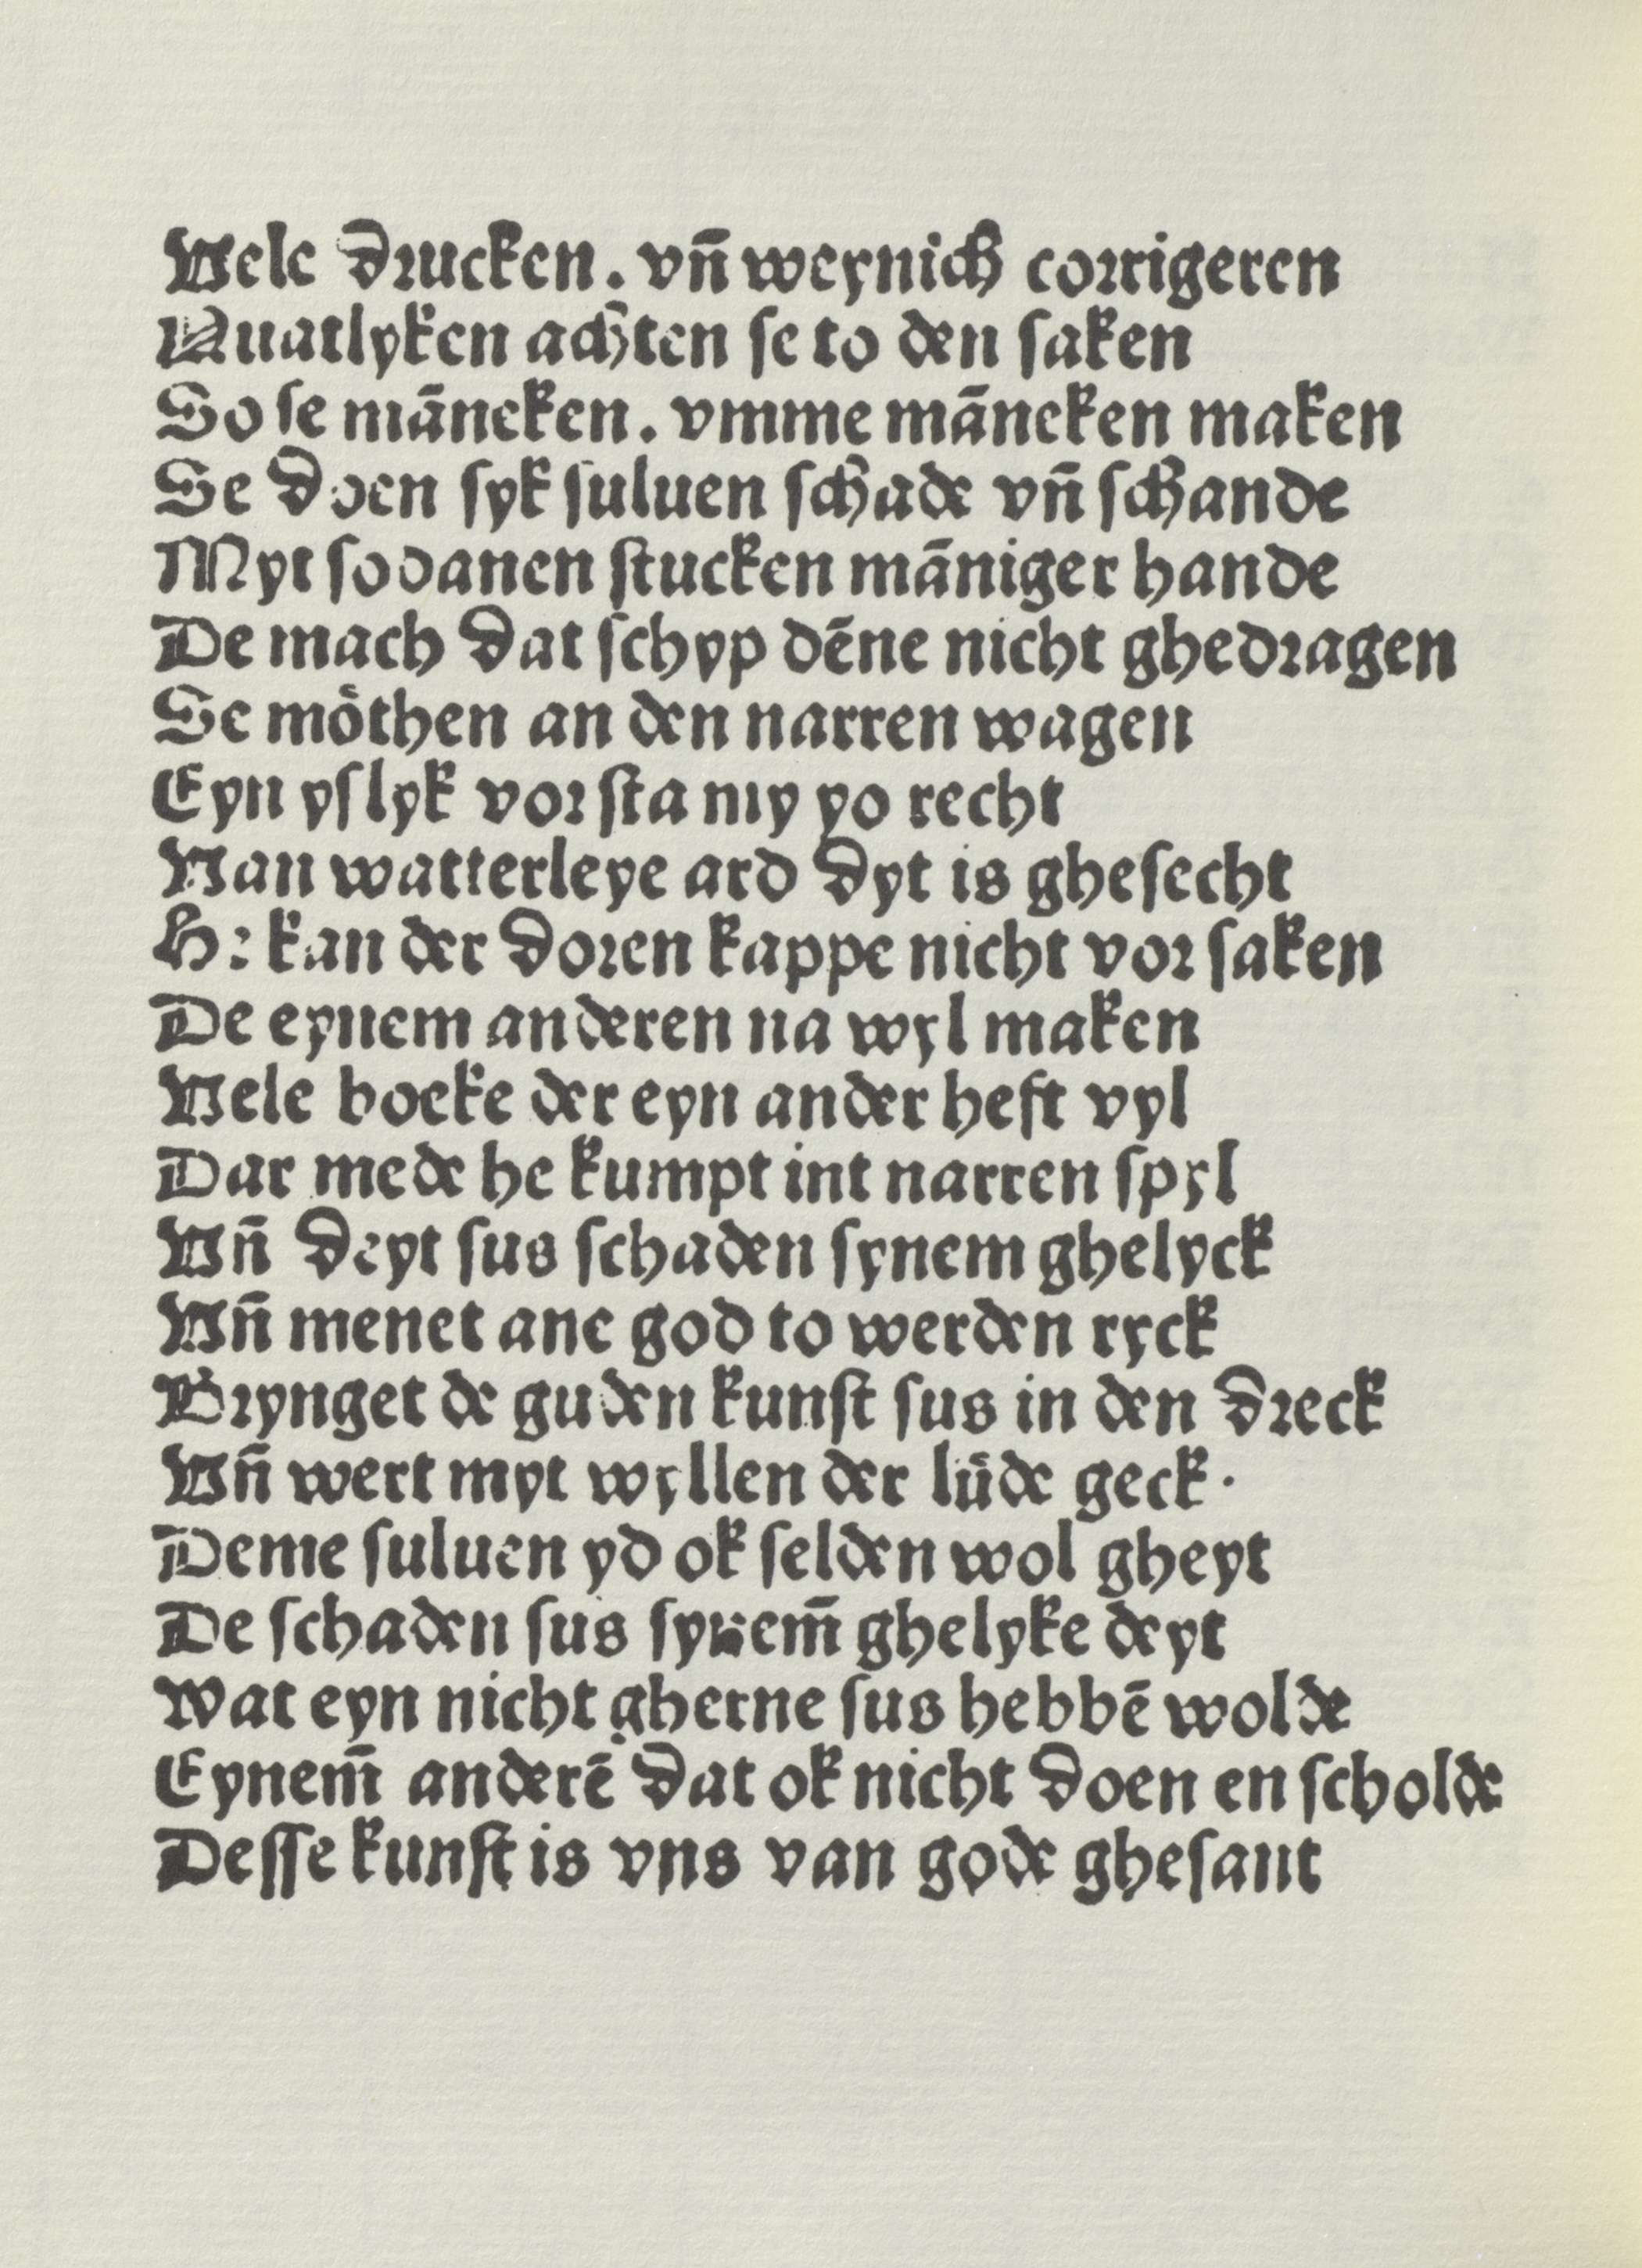 Vele drucken. vn̄ weynich corrigeren
Quatlyken achten se to den saken
So se māncken. vmme māncken maken
Se doen syk suluen schade vn̄ schande
Myt sodanen stucken māniger hande
De mach dat schyp dēne nicht ghedragen
Se mo̊then an den narren wagen
Eyn yslyk vor sta my yo recht
Van watterleye ard dyt is ghesecht
He kan der doren kappe nicht vor saken
De eynem anderen na wyl maken
Vele boeke der eyn ander heft vyl
Dar mede he kumpt int narren spyl
Vn̄ deyt sus schaden synem ghelyck
Vn̄ menet ane god to werden ryck
Brynget de guden kunst sus in den dreck
Vn̄ wert myt wyllen der lu̎de geck.
Deme suluen yd ok selden wol gheyt
De schaden sus synem̄ ghelyke deyt
Wat eyn nicht gherne sus hebbē wolde
Eynem̄ anderē dat ok nicht doen en scholde
Desse kunst is vns van gode ghesant